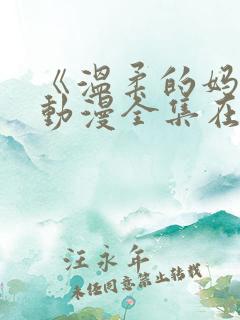 《温柔的妈
動漫全集在
汪永年
未经同意禁止转载